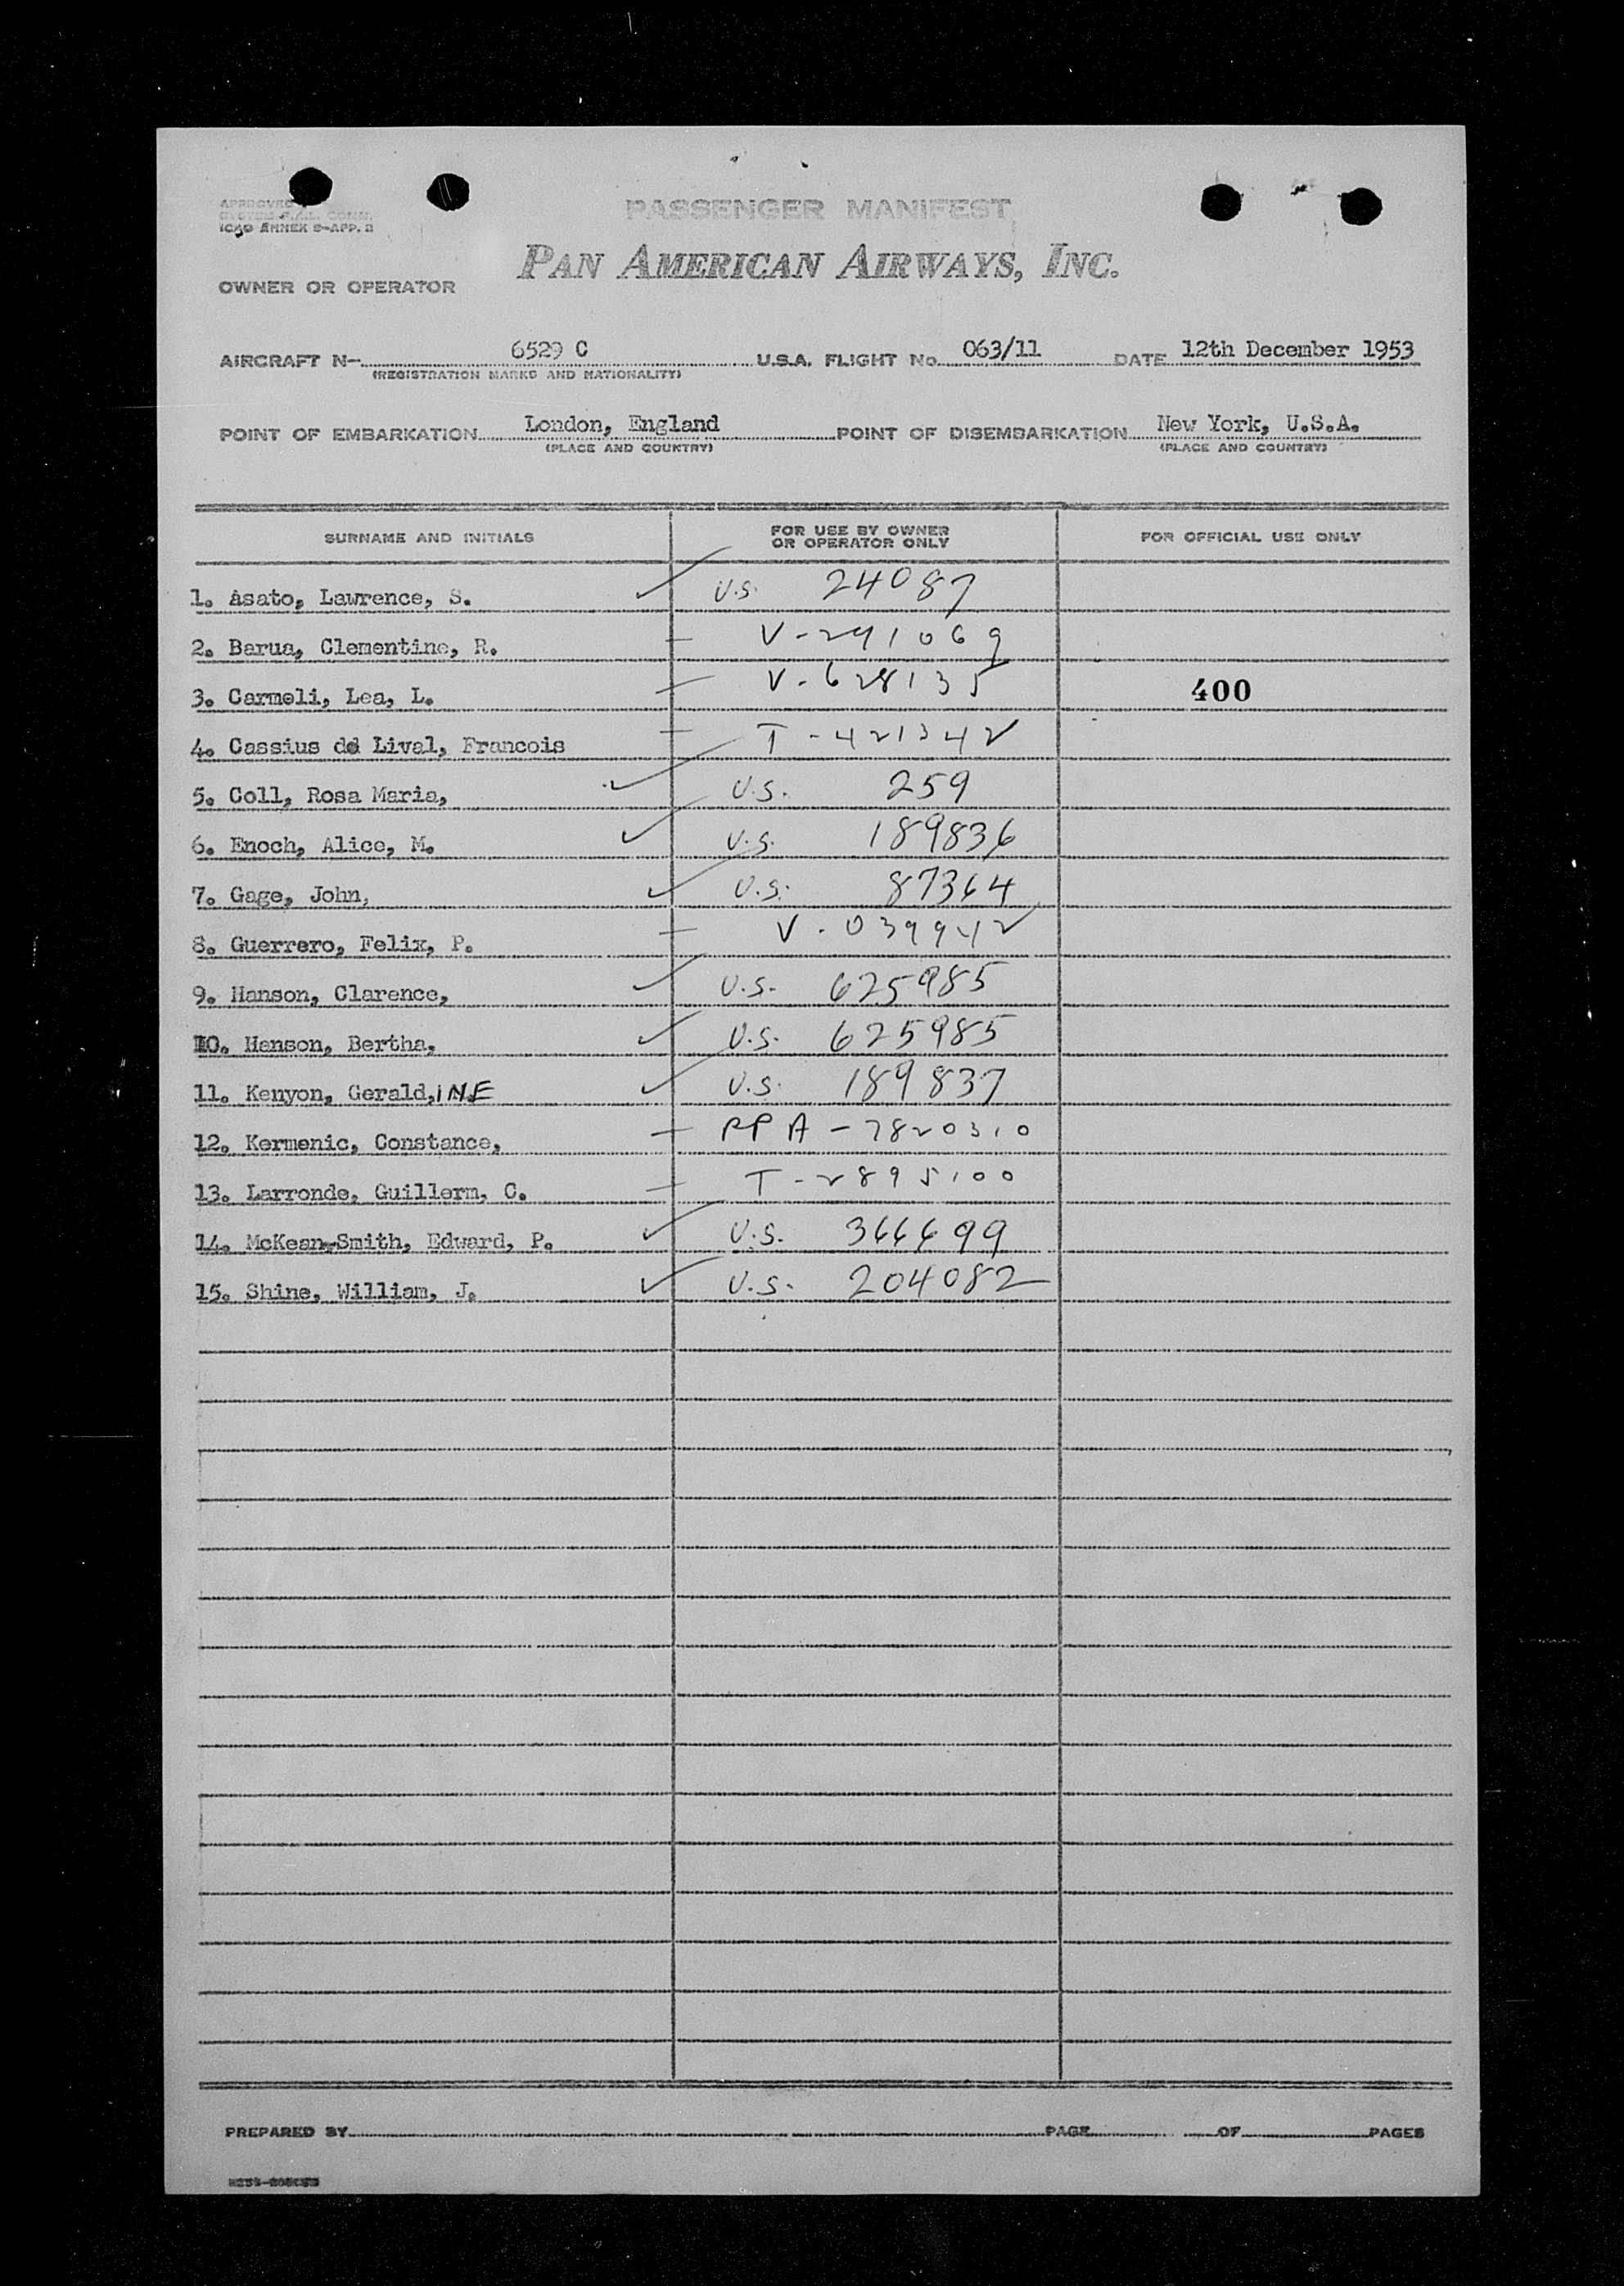 APPROVED
SYSTEM F.A.L. COMM.
ICAO ANNEX 9-APP. 2
PASSENGER MANIFEST
PAN AMERICAN AIRWAYS, INC.
OWNER OR OPERATOR
AIRCRAFT N- 6529 C U.S.A. FLIGHT No. 063/11 DATE 12th December 1953
(REGISTRATION MARKS AND NATIONALITY)
POINT OF EMBARKATION London, England POINT OF DISEMBARKATION New York, U.S.A.
(PLACE AND COUNTRY) (PLACE AND COUNTRY)
SURNAME AND INITIALS FOR USE BY OWNER OR OPERATOR ONLY FOR OFFICIAL USE ONLY
1. Asato, Lawrence, S. ✓ U.S. 24087
2. Barua, Clementine, R. — V-291069
3. Carmeli, Lea, L. — V-628135 400
4. Cassius de Lival, Francois — T-421342
5. Coll, Rosa Maria, ✓ U.S. 259
6. Enoch, Alice, M. ✓ U.S. 189836
7. Gage, John, ✓ U.S. 87364
8. Guerrero, Felix, P. — V-039942
9. Hanson, Clarence, ✓ U.S. 625985
10. Hanson, Bertha, ✓ U.S. 625985
11. Kenyon, Gerald,INE ✓ U.S. 189837
12. Kermenic, Constance, — PPA-7820310
13. Larronde, Guillerm, C. — T-2895100
14. McKean-Smith, Edward, P. ✓ U.S. 366699
15. Shine, William, J. ✓ U.S. 204082
PREPARED BY PAGE OF PAGES